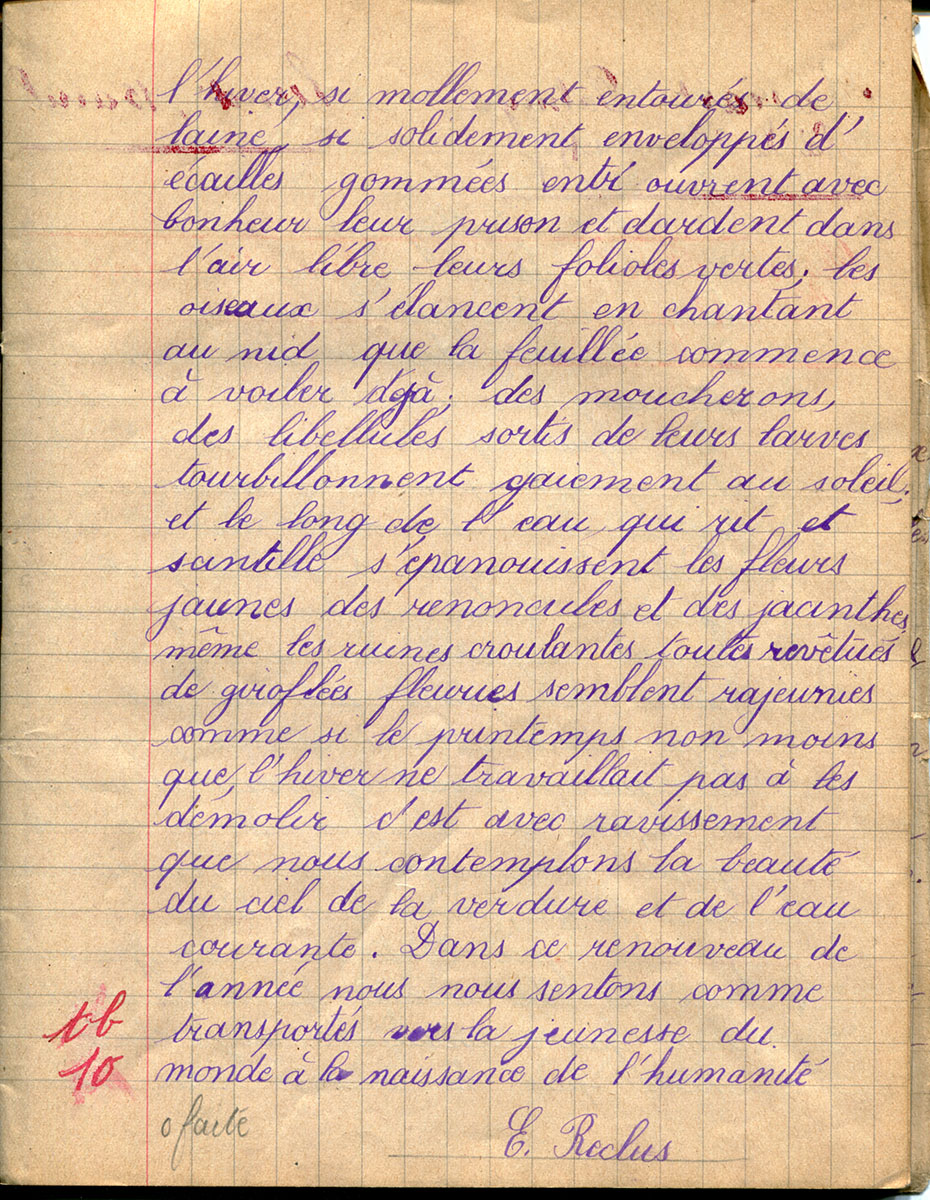 l'hiver, si mollement entourés de
laine, si solidement enveloppés d'
écailles gommées entr'ouvrent avec
bonheur leur prison et dardent dans
l'air libre leurs folioles vertes. les
oiseaux s'élancent en chantant
au nid que la feuillée commence
à voiler déjà; des moucherons,
des libellules sortis de leurs larves
tourbillonnent gaiement au soleil.
et le long de l'eau qui rit et
scintille s'épanouissent les fleurs
jaunes des renoncules et des jacinthes
même les ruines croulantes toutes revêtues
de giroflées fleuries semblent rajeunies
comme si le printemps non moins
que l'hiver ne travaillait pas à les
démolir c'est avec ravissement
que nous contemplons la beauté
du ciel de la verdure et de l'eau
courante. Dans ce renouveau de
l'année nous nous sentons comme
transportés vers la jeunesse du
monde à la naissance de l'humanité
tb
10
0 faute
E. Reclus